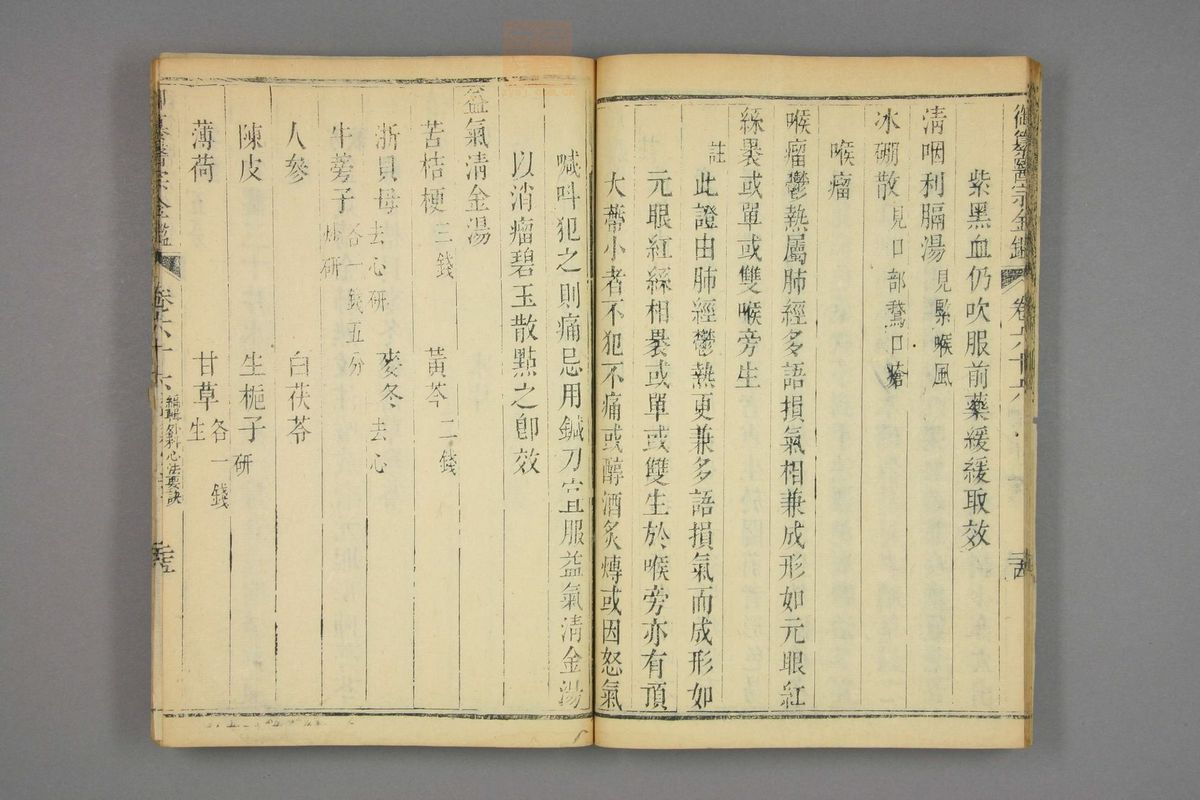 御纂醫宗金鑑 卷六十六
紫黑血仍吹服前藥緩緩取效
清咽利膈湯見緊喉風
冰硼散見口部鵞口瘡
喉瘤
喉瘤鬱熱屬肺經多語損氣相兼成形如元眼紅
絲裹或單或雙喉旁生
註 此證由肺經鬱熱更兼多語損氣而成形如
元眼紅絲相裹或單或雙生於喉旁亦有頂
大蒂小者不犯不痛或醇酒炙煿或因怒氣
喊呌犯之則痛忌用鍼刀宜服益氣清金湯
以消瘤碧玉散點之卽效
益氣清金湯
苦桔梗三錢 黃芩二錢
浙貝母去心研 麥冬去心
牛蒡子各一錢五分炒研
人參 白茯苓
陳皮 生梔子研
薄荷 甘草生各一錢
宗金鑑 卷六十六 編輯外科心法要訣 二十五